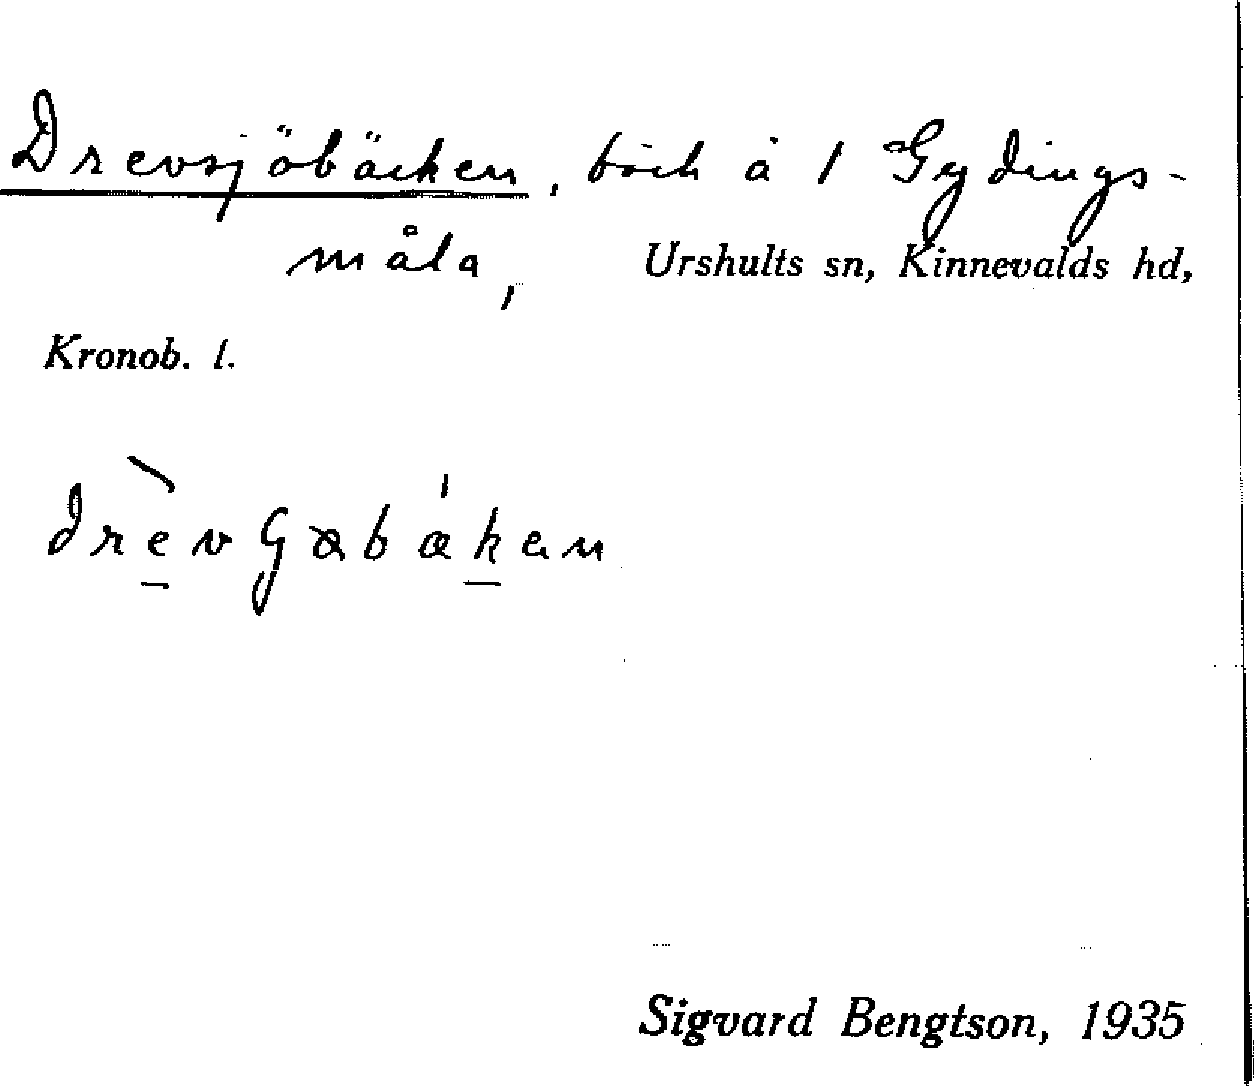 Drevsjöbäcken, bäck å 1 Gydings-
måla, Urshults sn, Kinnevalds hd,
Kronob. l.
Sigvard Bengtson, 1935